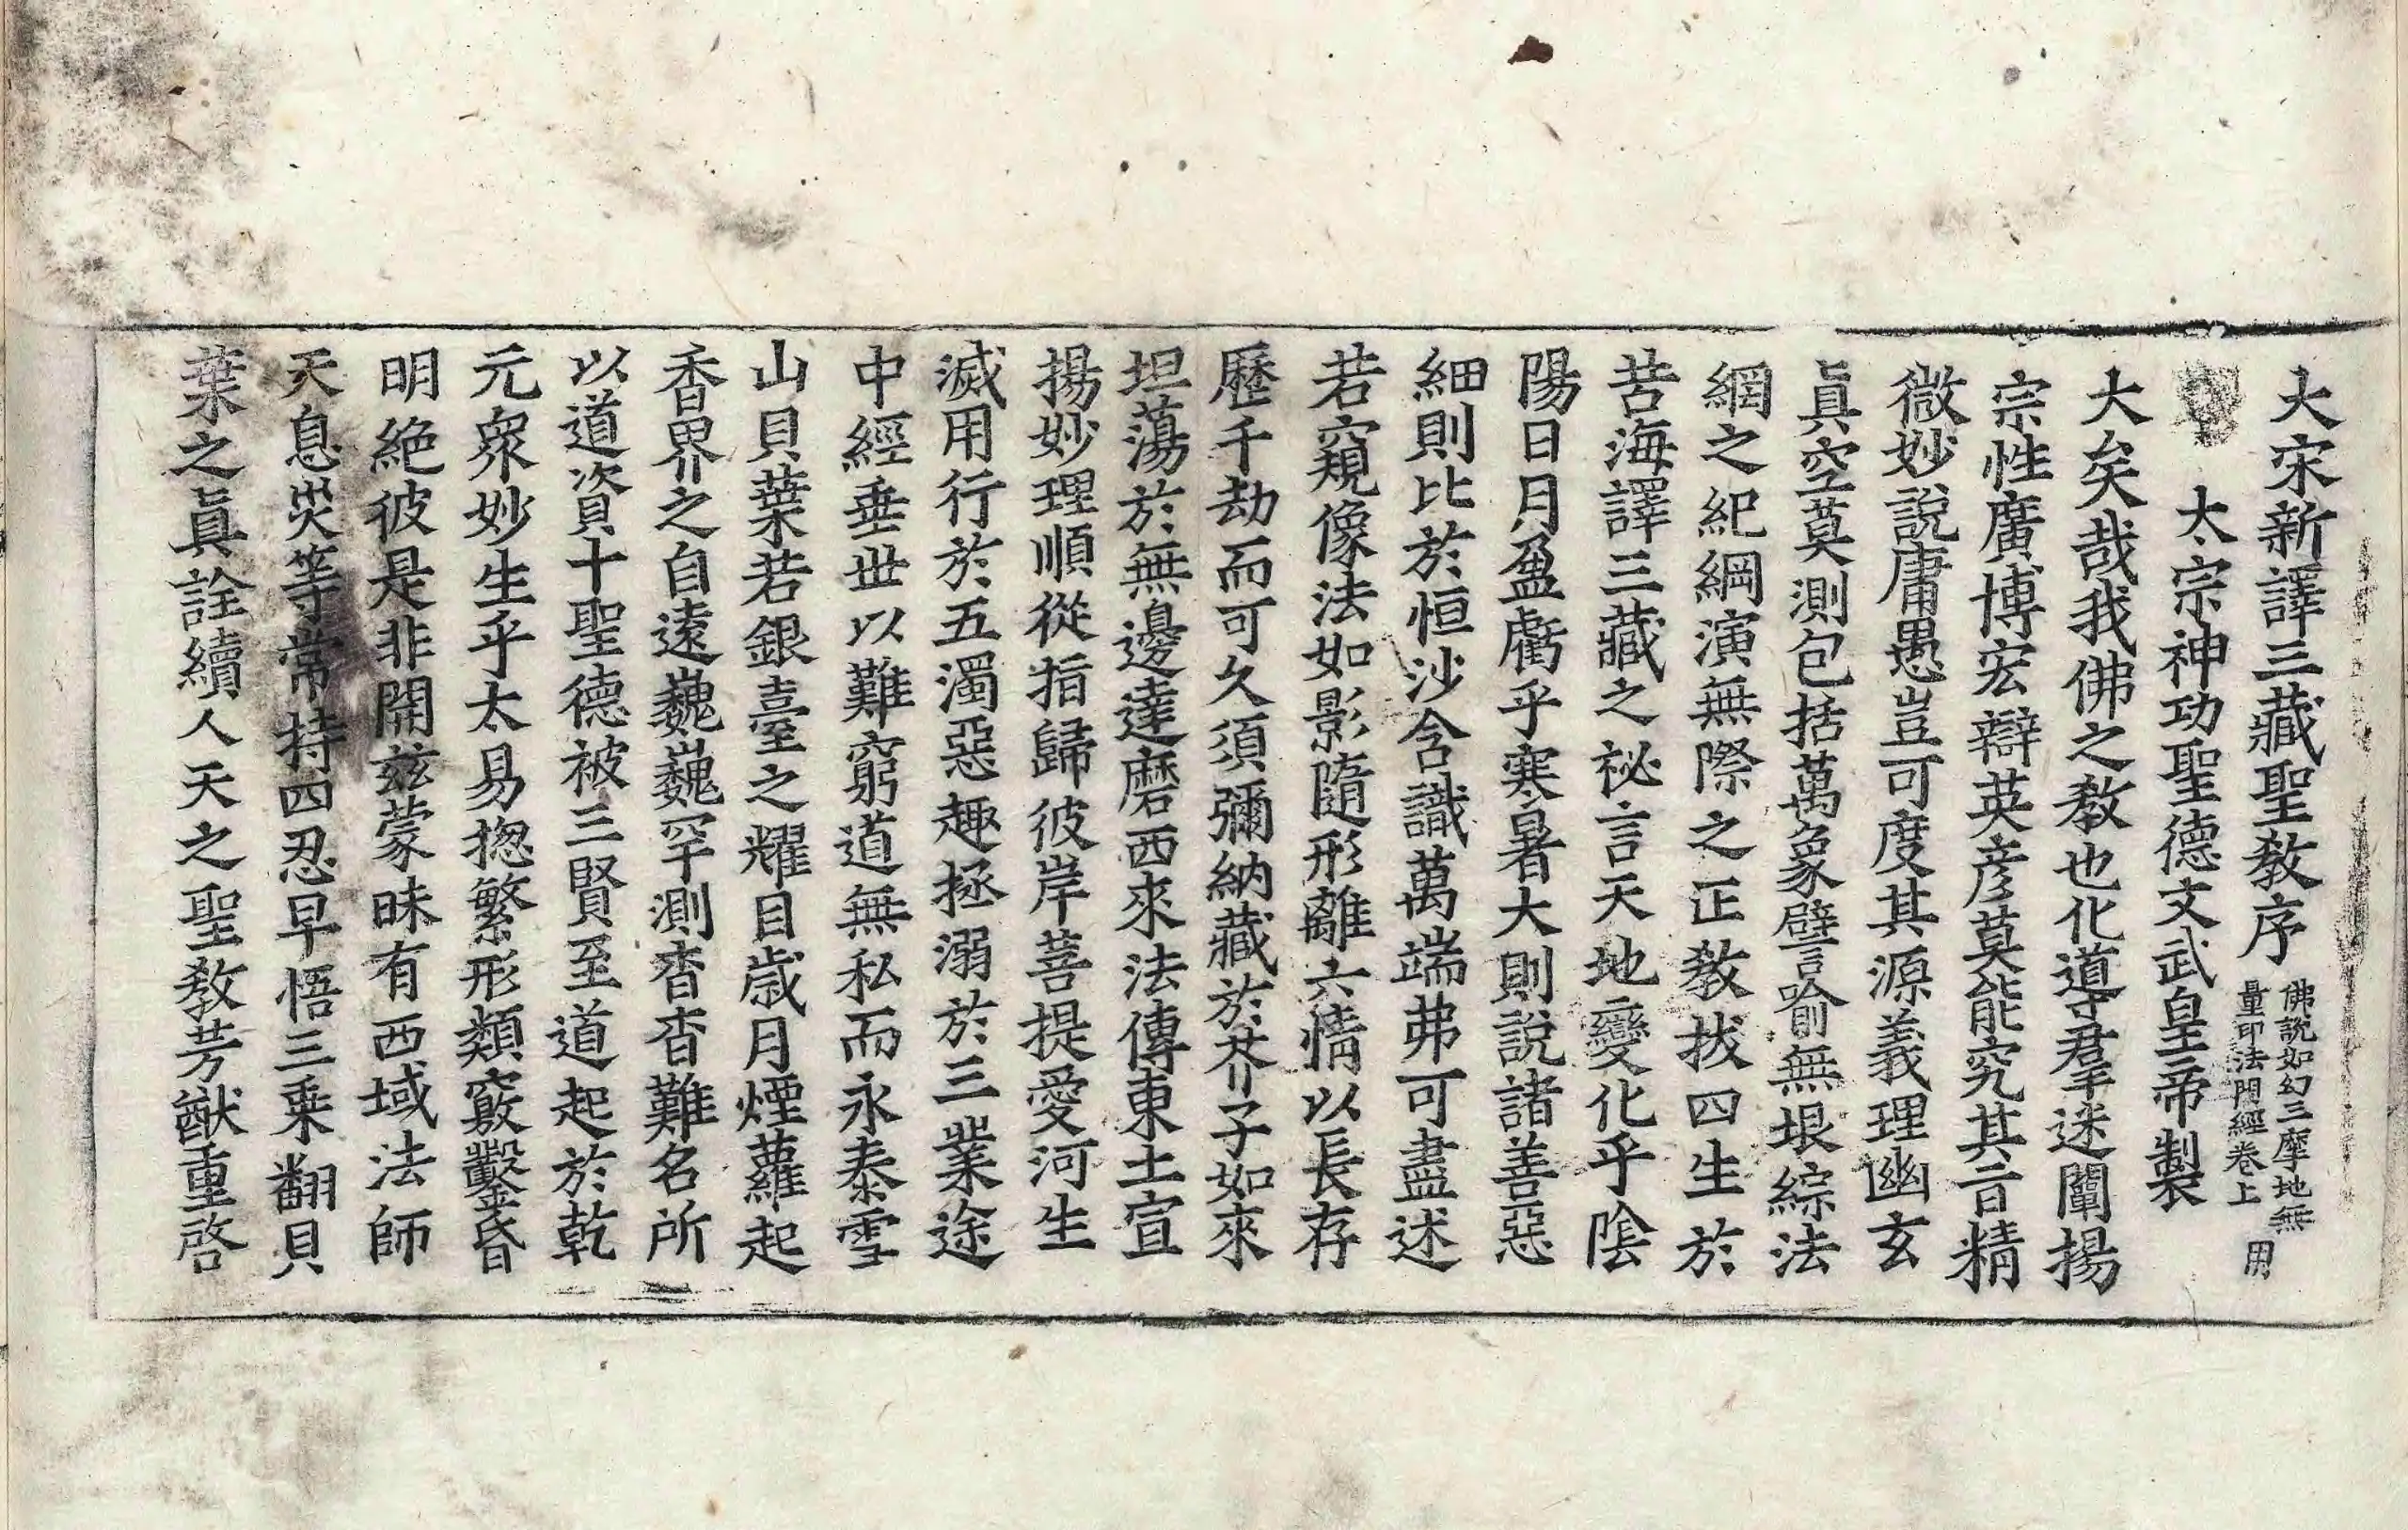 大宋新譯三藏聖教序 佛說如幻三摩地無量印法門經卷上 用
太宗神功聖德文武皇帝製
大矣哉我佛之教也化導羣迷闡揚
宗性廣博宏辯英彦莫能究其旨精
微妙說庸愚豈可度其源義理幽玄
眞空莫測包括萬象譬喻無垠綜法
網之紀綱演無際之正教拔四生於
苦海譯三藏之祕言天地變化乎陰
陽日月盈虧乎寒暑大則說諸善惡
細則比於恒沙含識萬端弗可盡述
若窺像法如影隨形離六情以長存
歷千劫而可久須彌納藏於芥子如來
坦蕩於無邊達磨西來法傳東土宣
揚妙理順從指歸彼岸菩提愛河生
滅用行於五濁惡趣拯溺於三業途
中經垂世以難窮道無私而永泰雪
山貝葉若銀臺之耀目歲月煙蘿起
香界之自遠巍巍罕測杳杳難名所
以道資十聖德被三賢至道起於乾
元衆妙生乎太易揔繁形類竅鑿昏
明絶彼是非開茲蒙昧有西域法師
天息災等常持四忍早悟三乘翻貝
葉之眞詮續人天之聖教芳猷重啓